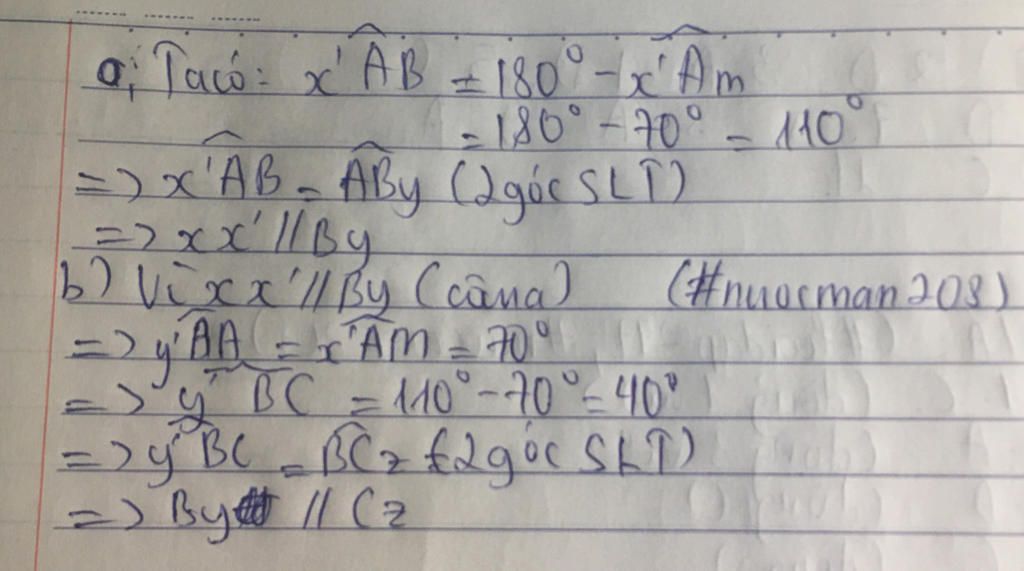 a, Ta có: x'ÂB = 180° - x'Âm
= 180° - 70° = 110°
=> x'ÂB = ÂBy (2 góc SLT)
=> xx' // By
b) Vì xx' // By (câu a) (#nuocman203)
=> y'ÂA = x'ÂM = 70°
=> y'B̂C = 110° - 70° = 40°
=> y'B̂C = B̂Cz (2 góc SLT)
=> By // Cz